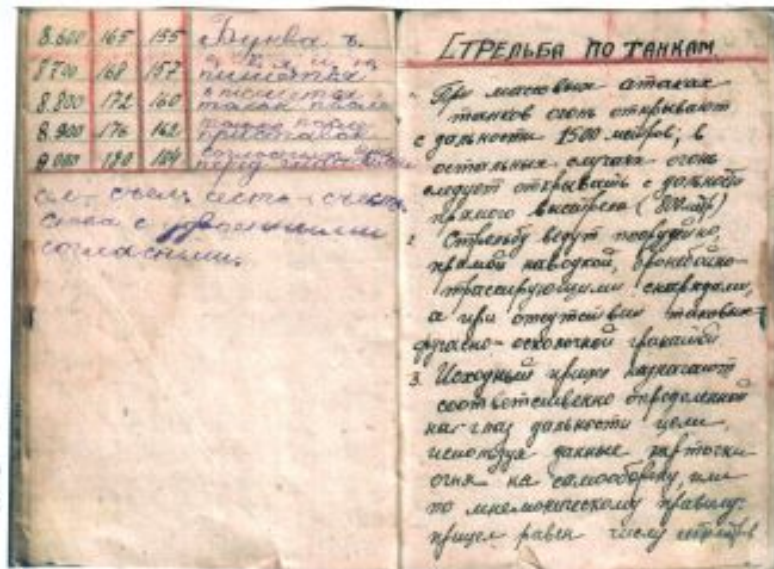 8.600 165 155 Буква ъ.
8700 168 157 пишется
8.800 172 160 также после
8.900 176 162 приставок
9.000 180 164 перед
съел, съем, сесть - счесть.
слова с двоенными
согласными.
СТРЕЛЬБА ПО ТАНКАМ
При массовых атаках
танков огонь открывают
с дальности 1500 метров; в
остальных случаях огонь
следует открывать с дальности
прямого выстрела (800 мтр)
2. Стрельбу ведут поорудийно,
прямой наводкой, бронебойно-
трассирующими снарядами,
а при отсутствии таковых
фугасно-осколочной гранатой
3. Исходный прицел назначают
соответственно определенной
на глаз дальности цели,
используя данные карточки
огня на самооборону, или
по мнемоническому правилу:
прицел равен числу метров